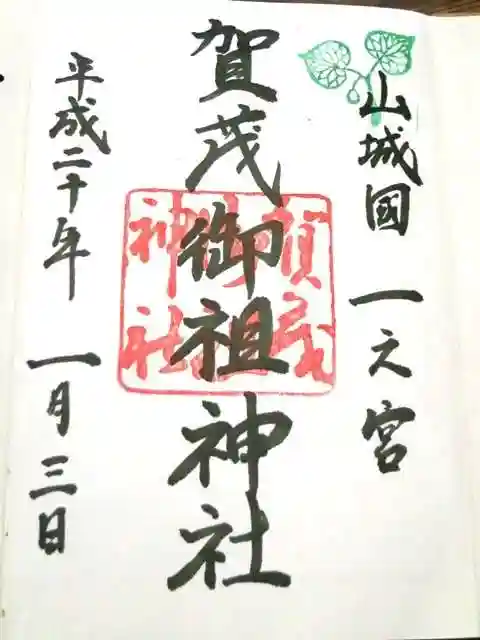 山城國 一之宮
賀茂御祖神社
平成二十年 一月三日